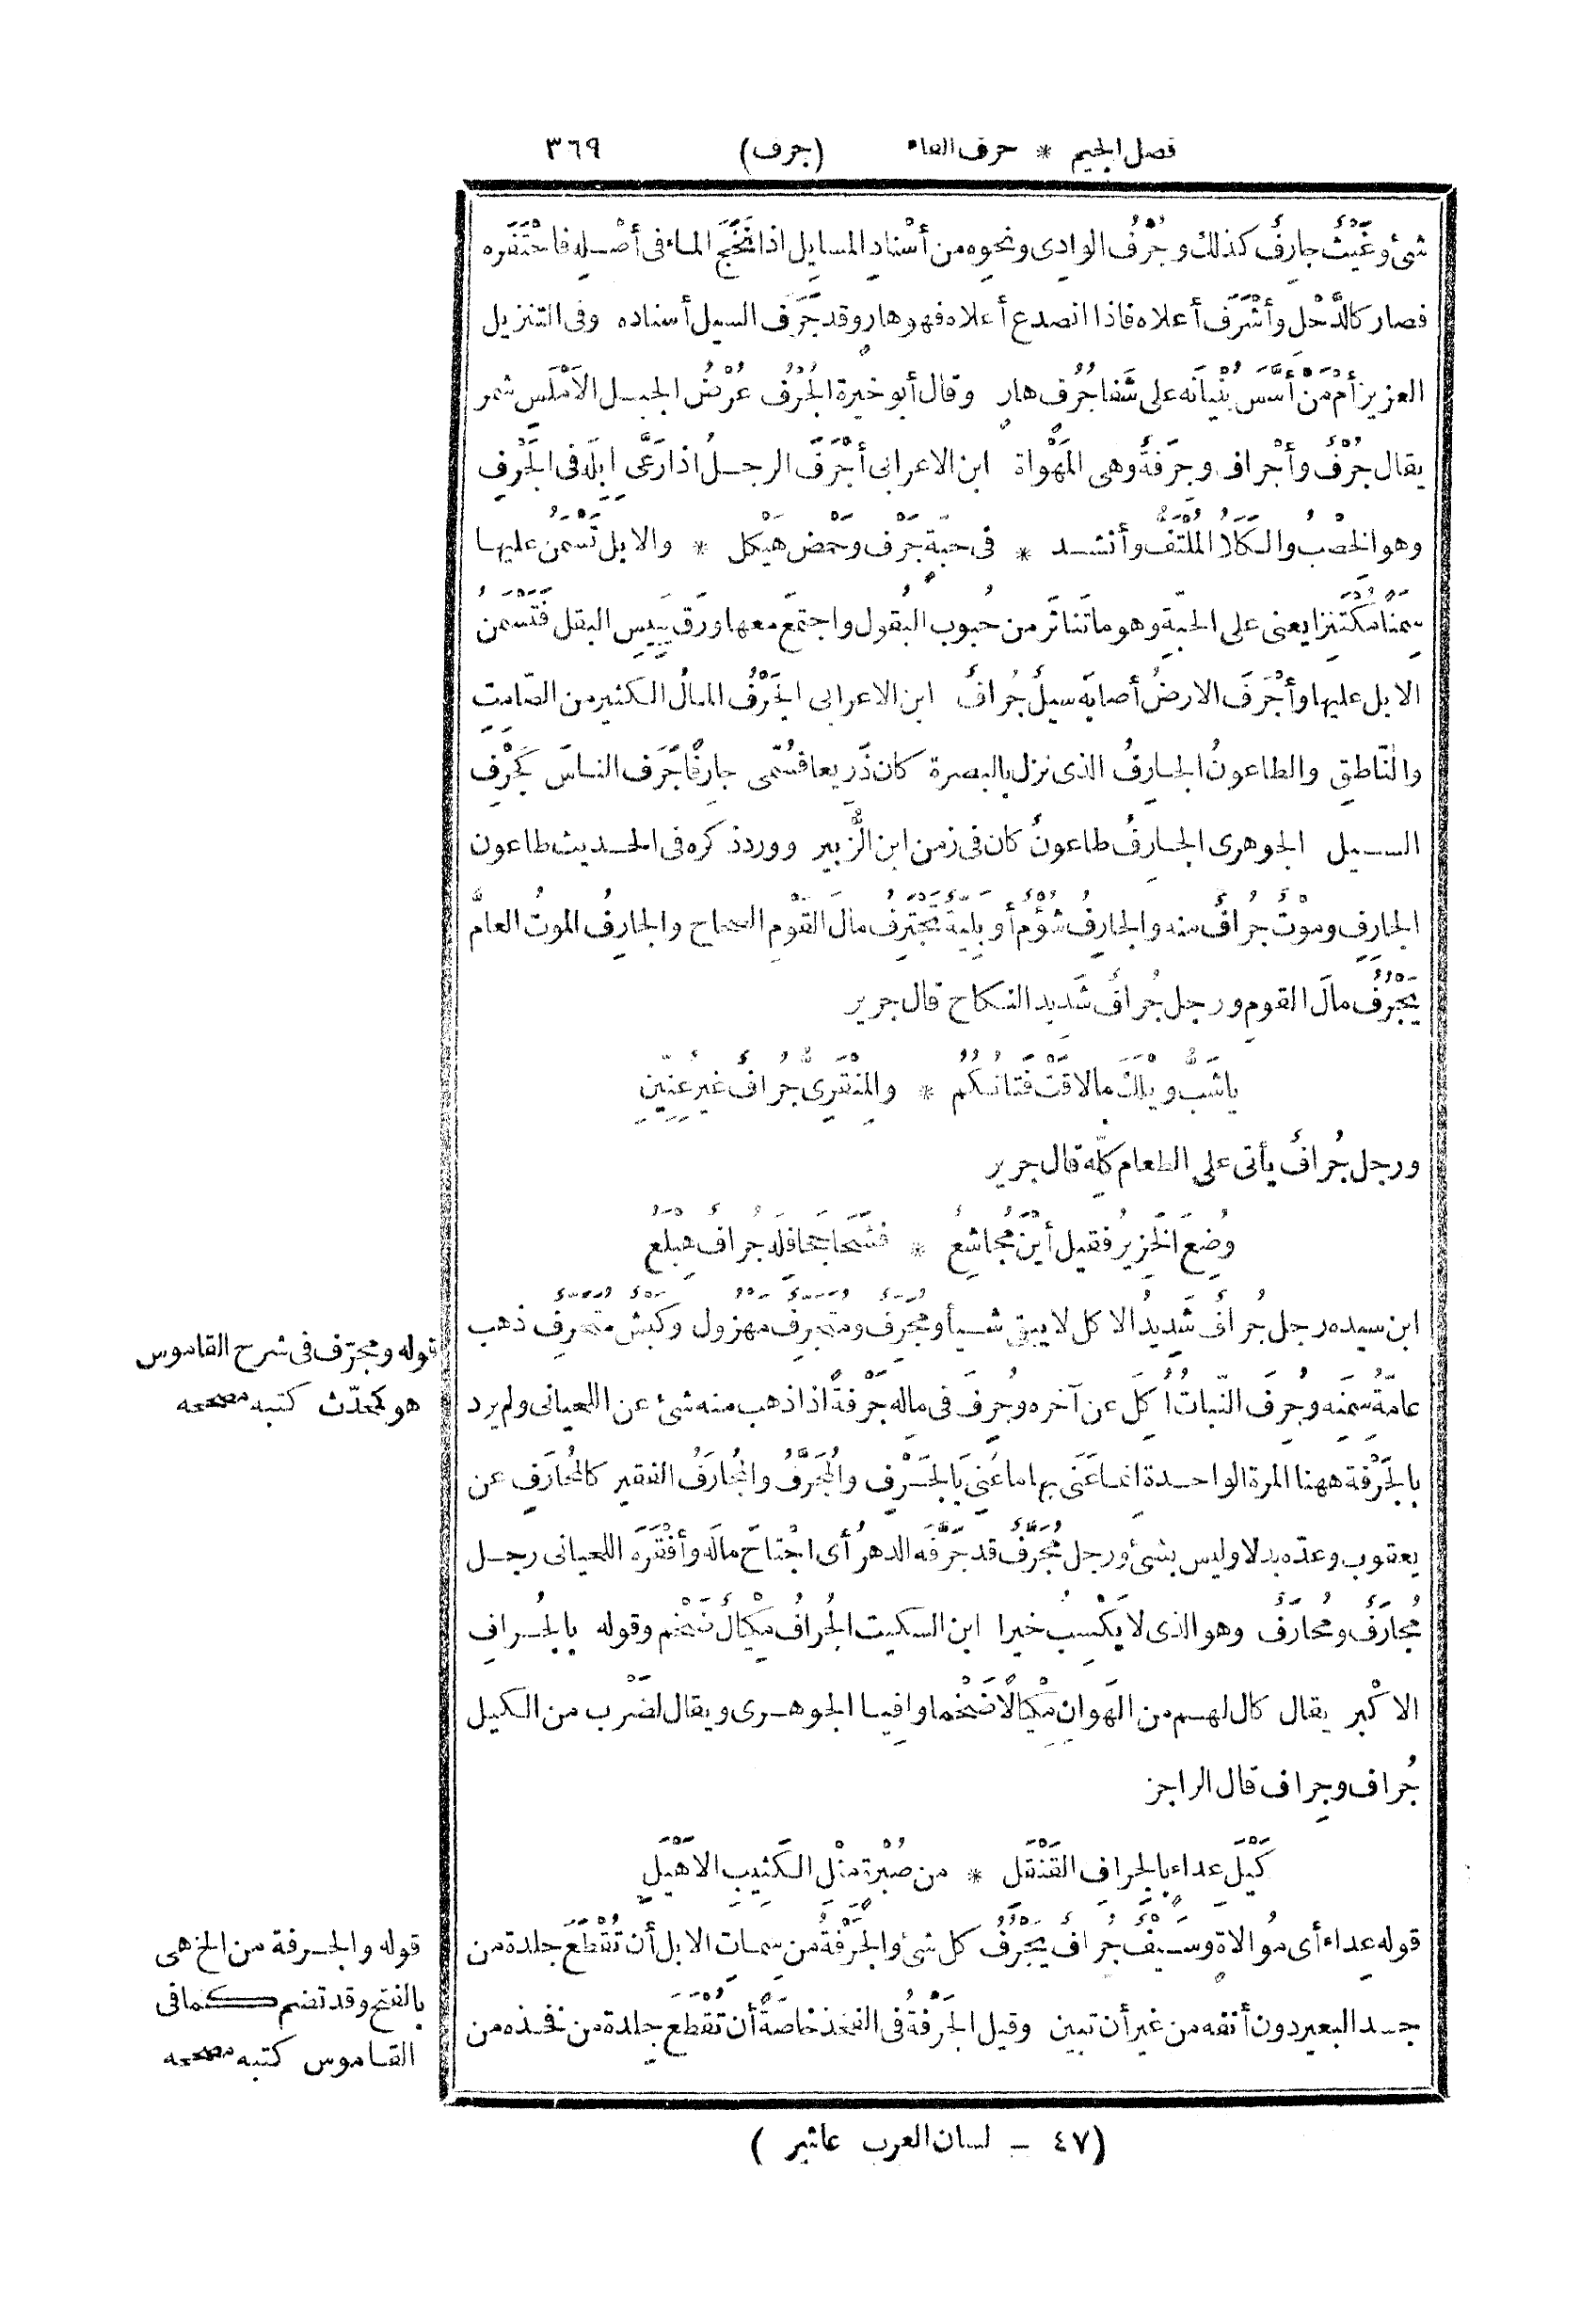 فصل الجيم * حرف الفاء (جرف) ٣٦٩
شئ وغَيْثٌ جارِفٌ كذلك وجُرْفُ الوادِى ونحوِه من أسْنادِ المسايِلِ اذا نَخَجَ الماءُ فى أصْلِه فاحْتَفَره
فصار كالدَّحْلِ وأشْرَفَ أعلاه فاذا انصدع أعلاه فهو هارٍ وقد جَرَفَ السيل أسناده وفى التنزيل
العزيز أمْ مَنْ أَسَّسَ بُنْيَانَه على شَفا جُرُفٍ هارٍ وقال أبو خيرة الجُرْفُ عُرْضُ الجبل الأمْلَسِ شمر
يقال جُرْفٌ وأجْرافٌ وجِرَفَةٌ وهى المَهْواة ابن الاعرابى أَجْرَفَ الرجلُ اذا رَعَّى ابلَه فى الجَرْفِ
وهو الخِصْبُ والكَلَأُ المُلْتَفُّ وأنشد * فى حِبَّةٍ جَرْفٍ وحَمْضٍ هَيْكَلِ * والابل تَسْمَنُ عليها
سِمَنًا مُكْتَنِزا يعنى على الحِبّةِ وهو ما تَناثَر من حُبوبِ البُقول واجتمَع معها ورَق يَبِيسِ البقل فَتَسْمَنُ
الابل عليها وأَجْرَفَ الارضُ أصابَها سيلٌ جُرافٌ ابن الاعرابى الجَرْفُ المالُ الكثير من الصّامِتِ
والنّاطِقِ والطاعونُ الجارِفُ الذى نزل بالبصرة كان ذَرِيعا فسُمّى جارِفًا جَرَف الناسَ كَجَرْفِ
السيل الجوهرى الجارِفُ طاعونٌ كان فى زمن ابن الزُّبير وورد ذكره فى الحديث طاعون
الجارِفِ وموْتٌ جُرافٌ منه والجارِفُ شُؤْمٌ أو بَلِيّةٌ تَجْتَرِفُ مالَ القَوْمِ الصحاح والجارِفُ الموتُ العامُّ
يَجْرُفُ مالَ القومِ ورجل جُرافٌ شَدِيد النكاح قال جرير
يا شَبُّ ويْلَكَ ما لاقَتْ فَتاتُكُمُ * والمِنْقَرِىُّ جُرافٌ غيرُ عِنِّينِ
ورجل جُرافٌ يأتى على الطعام كلِّه قال جرير
وُضِعَ الخَزِيرُ فقيل أيْنَ مُجاشِعٌ * فشَحا جَحافِلَه جُرافٌ هِبْلَعُ
ابن سيده رجل جُرافٌ شَدِيدُ الاكل لا يبقى شيأ ومُجَرِفٌ ومُتَجَرِفٌ مهزول وكَبْشٌ مُتَجَرِّفٌ ذهب
عامّةُ سِمَنِه وجُرِفَ النّباتُ أُكِلَ عن آخره وجُرِفَ فى مالِه جَرْفةً اذا ذهب منه شئ عن اللحيانى ولم يرد
بالجَرْفة ههنا المرة الواحدة انما عَنَى بها ما عُنِىَ بالجَرْفِ والمُجَرَّفُ والمُجارَفُ الفقير كالمُحارَفِ عن
يعقوب وعدّه بدلا وليس بشئ ورجل مُجَرَّفٌ قد جَرَّفَه الدهرُ أى اجْتاحَ مالَه وأفْقَرَه اللحيانى رجل
مُجارَفٌ ومُحارَفٌ وهو الذى لا يَكْسِبُ خيرا ابن السكيت الجُرافُ مِكْيالٌ ضَخْم وقوله بالجُرافِ
الاكْبر يقال كال لهم من الهَوانِ مِكْيالًا ضَخْما وافِيا الجوهرى ويقال لضَرْب من الكيل
جُراف وجِراف قال الراجز
كَيْلَ عِداءٍ بالجِرافِ القَنْقَلِ * من صُبْرةٍ مثْلِ الكَثِيبِ الأَهْيَلِ
قوله عِداء أى مُوالاةٍ وسَيْفٌ جُرافٌ يَجْرُفُ كل شئ والجَرْفةُ من سِماتِ الابل أن تُقْطَعَ جلدة من
جسد البعير دون أنفه من غير أن تبين وقيل الجَرْفةُ فى الفخذ خاصّةً أن تُقْطَعَ جِلدة من فخذه من
قوله ومجرّف فى شرح القاموس
هو كمحدّث كتبه مصححه
قوله والجرفة من الخ هى
بالفتح وقد تضم كما فى
القاموس كتبه مصححه
(٤٧ – لسان العرب عاشر)